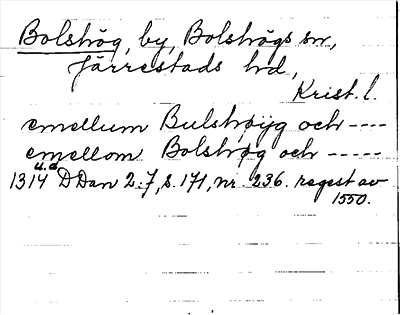 Bolshög, by, Bolshögs sn,
Järrestads hd,
Krist. l.
emellum Bulshøyg och ----
emellom Bolshøg och -----
u.d.
1314 DDan 2:7, s. 171, nr. 236. regest av
1550.